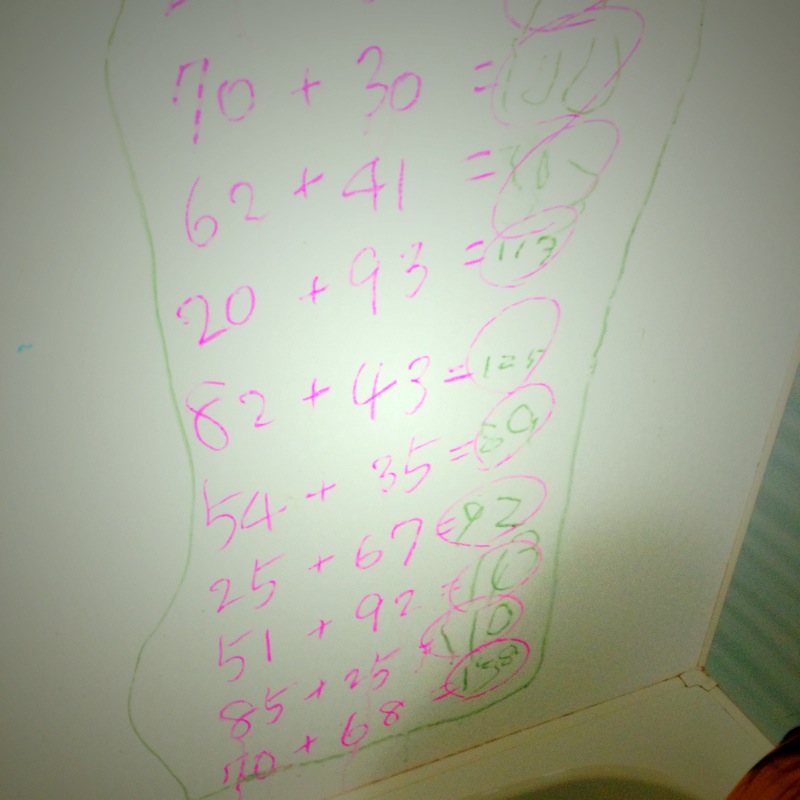 70 + 30 =
62 + 41 =
20 + 93 = 113
82 + 43 = 125
54 + 35 = 89
25 + 67 = 92
51 + 92 =
85 + 25 = 110
70 + 68 = 138